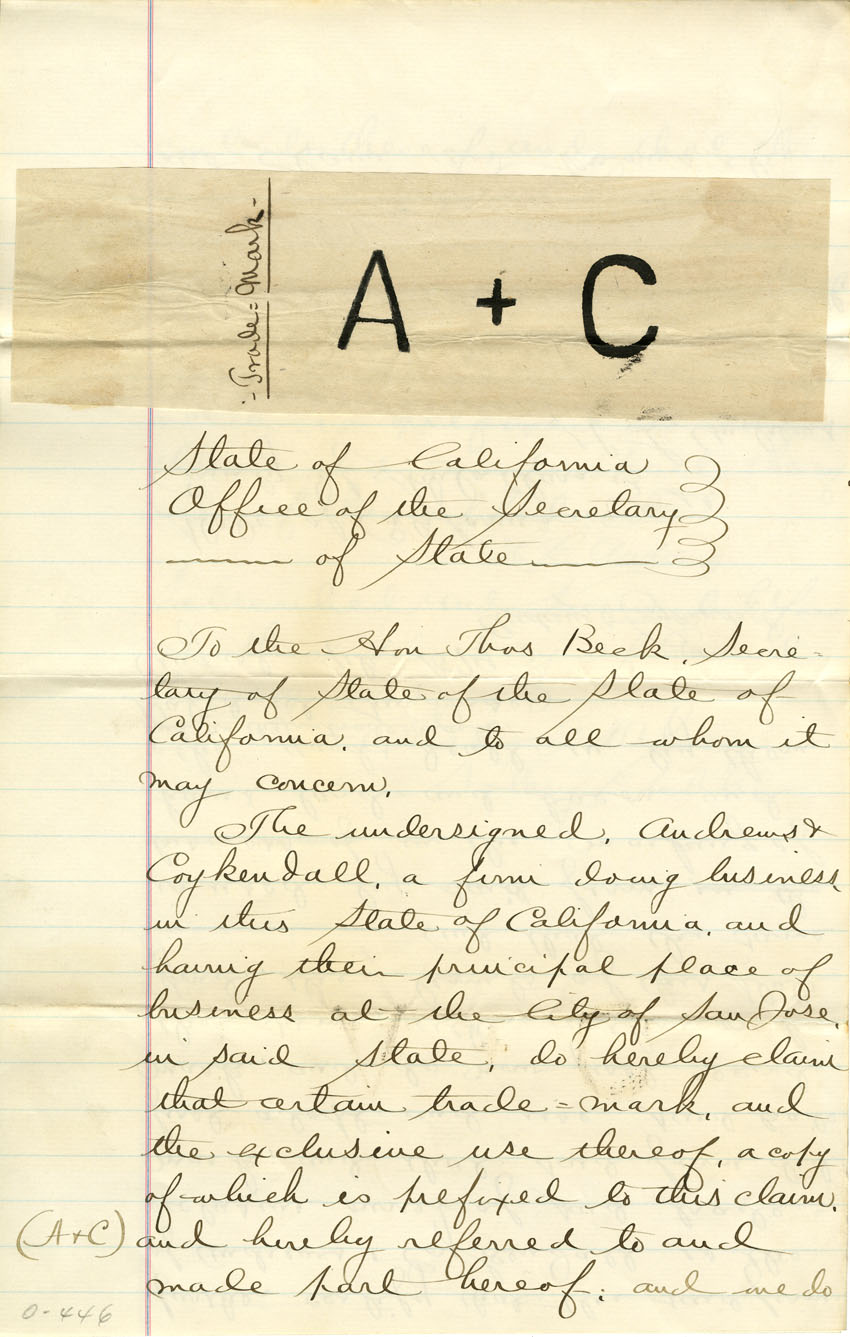 -: Trade = Mark -
A + C
State of California
Office of the Secretary
of State
To the Hon Thos Beck, Secre-
tary of State of the State of
California, and to all whom it
may concern,
The undersigned, Andrews &
Coykendall, a firm doing business
in this State of California, and
having their principal place of
business at the City of San Jose,
in said State, do hereby claim
that certain trade=mark, and
the exclusive use thereof, a copy
of which is prefixed to this claim,
(A+C) and hereby referred to and
made part hereof; and we do
0-446